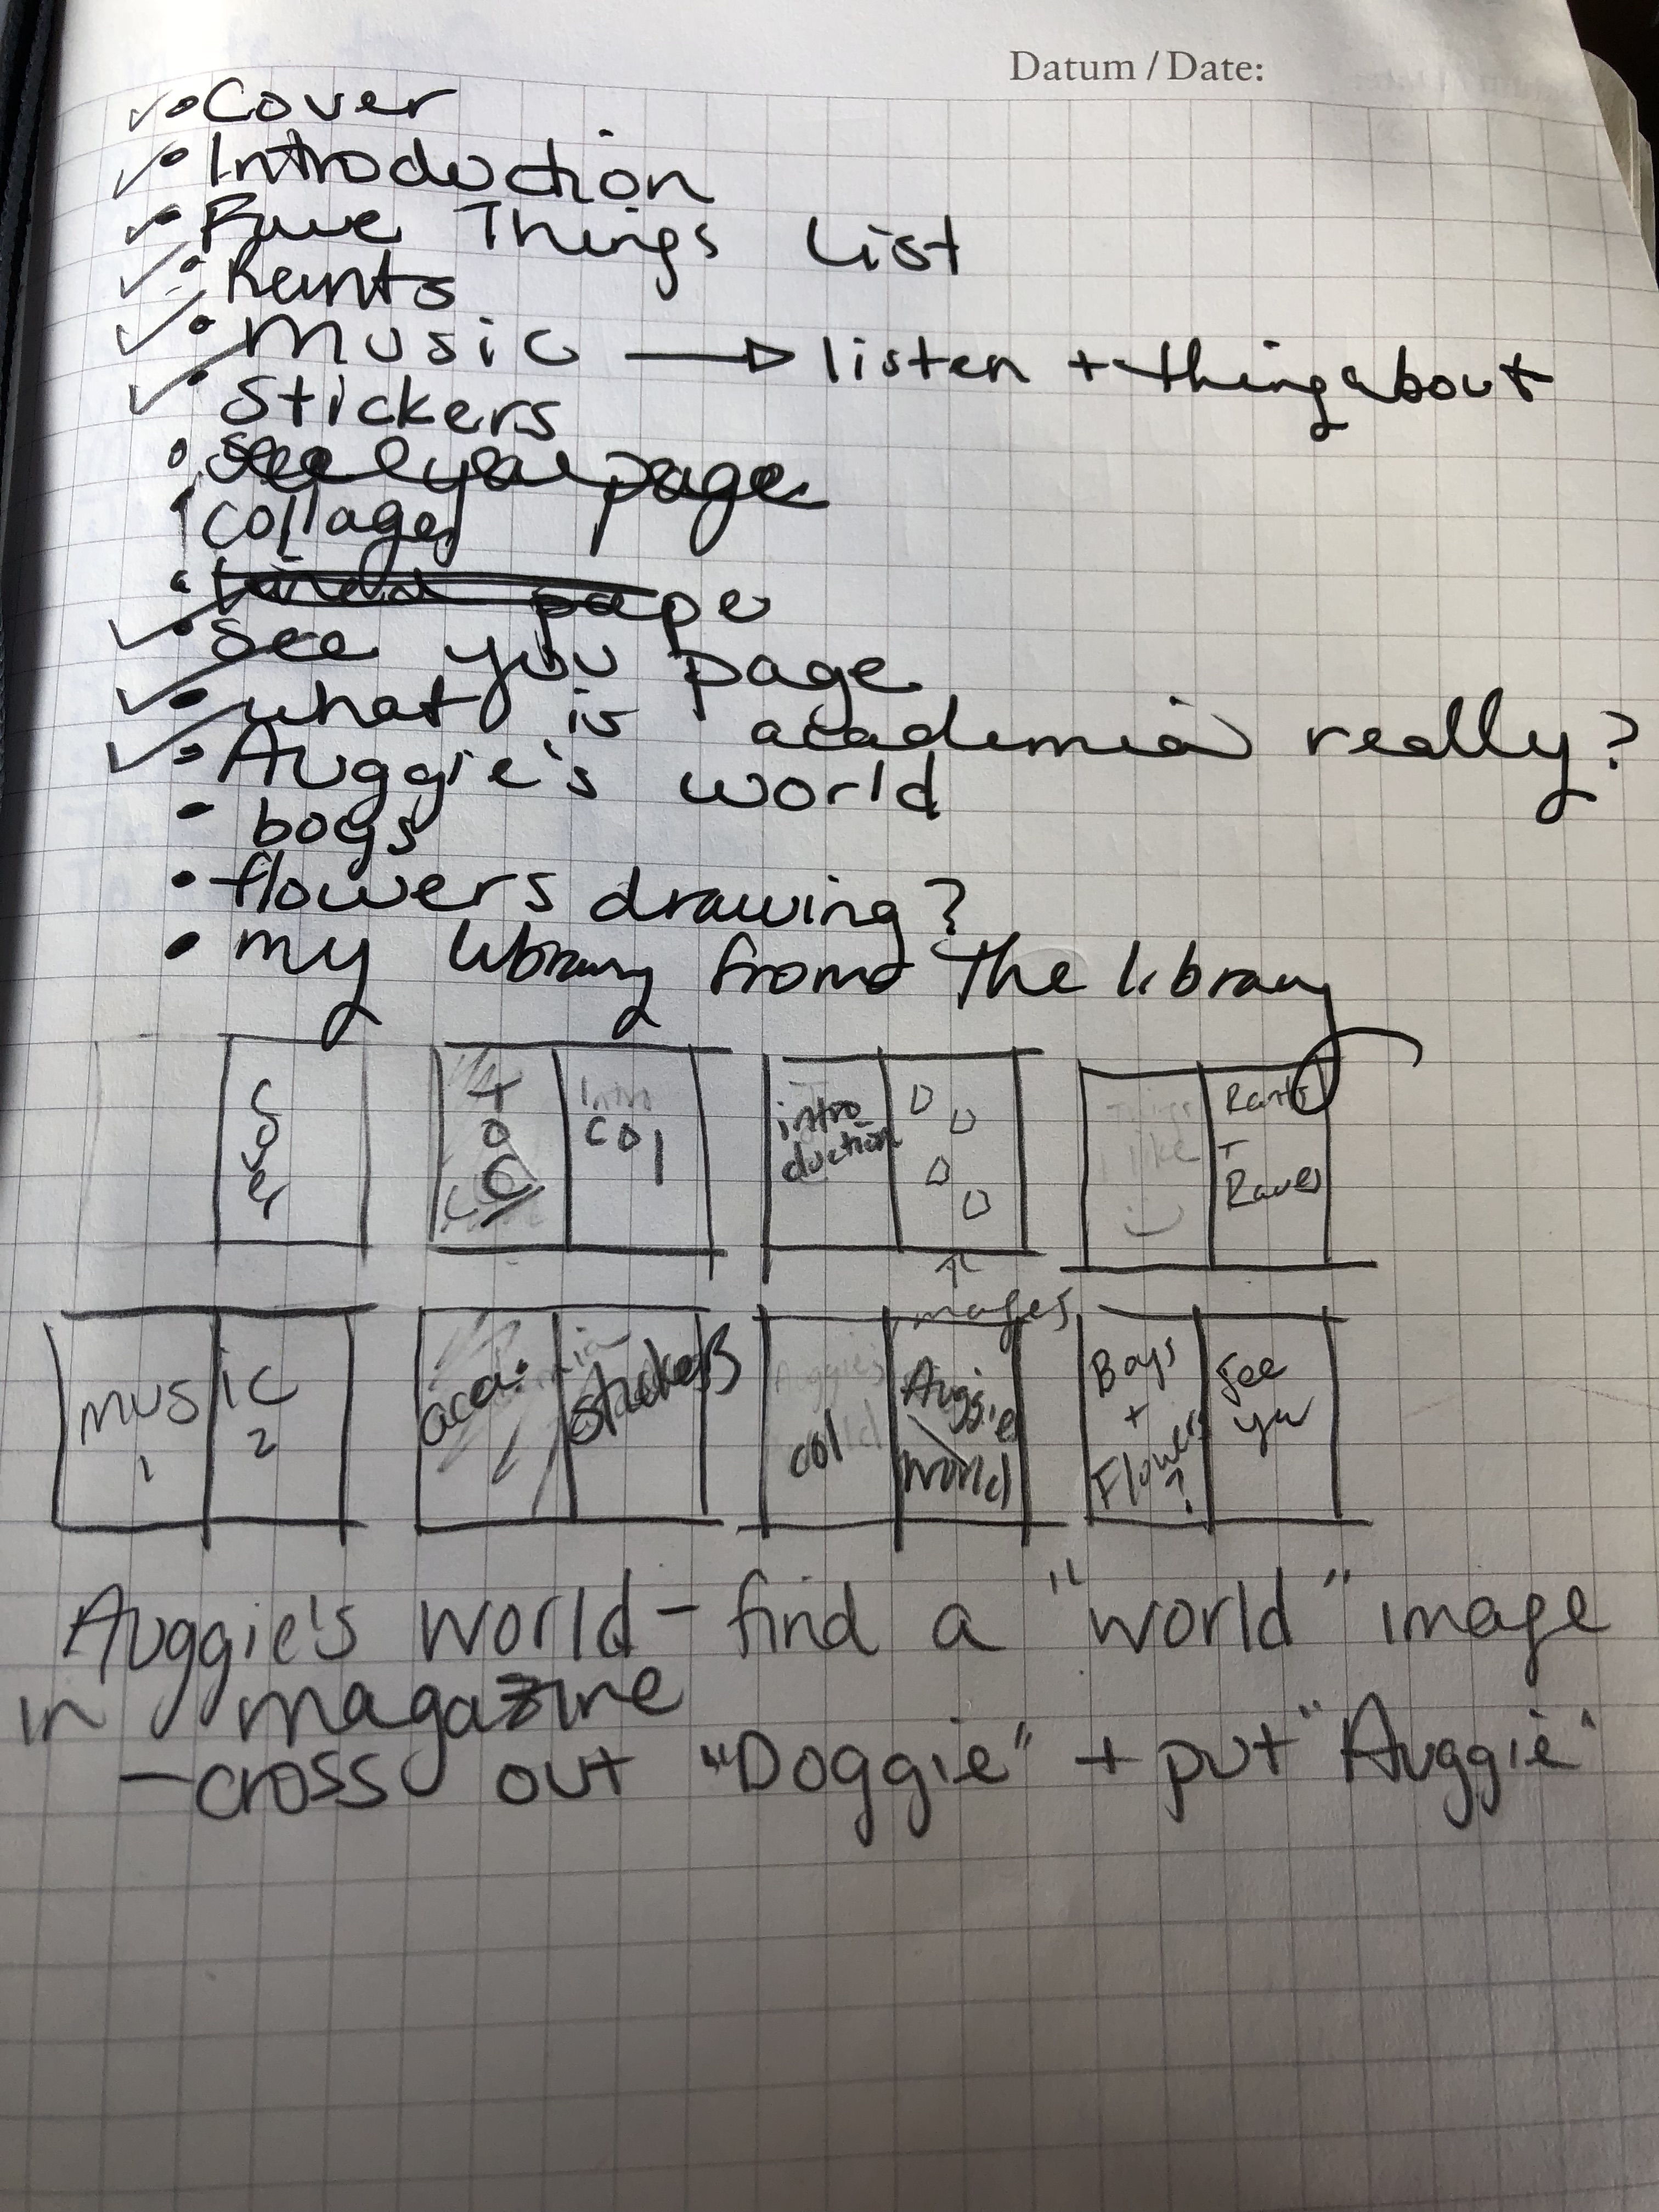 Datum / Date:
Cover
Introduction
Fave Things List
Rants
Music → listen + thing about
Stickers
page
collage
page
see you page
what is academia really?
Auggie's world
boys
flowers drawing?
my library from the library
Cover
TOC
Intro
col
intro
duction
images
Things
I like
Rants
+
Raves
music
1
2
aca
stickers
Auggie's
world
col
Auggie
World
Boys
+
Flowers
?
See
ya
Auggie's world - find a "world" image
in magazine
- cross out "Doggie" + put "Auggie"